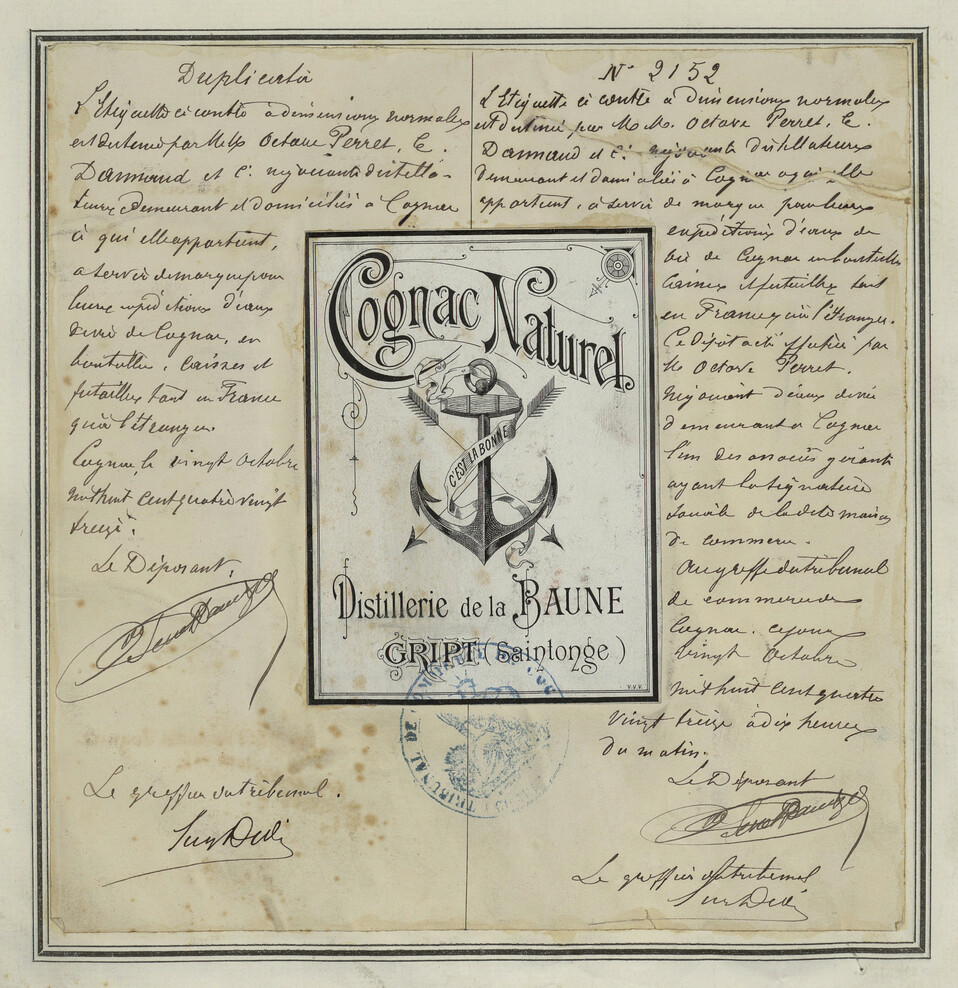 Duplicata
L'Etiquette ci contre à dimensions normales
est destinée par M.M. Octave Perret, E.
Dammaud et Cie. négociants distilla-
teurs demeurant et domiciliés à Cognac
à qui elle appartient,
a servir de marque pour
leurs expéditions d'eaux
de vie de Cognac, en
bouteilles, Caisses et
futailles tant en France
qu'à l'étranger.
Cognac, le vingt Octobre
mil huit cent quatre vingt
treize.
Le Déposant,
Le greffier du tribunal.
N° 2152
L'Etiquette ci contre à dimensions normales
est destinée par M.M. Octave Perret, E.
Dammaud et Cie. négociants distillateurs
demeurant et domiciliés à Cognac a qui elle
appartient, à servir de marque pour leurs
expéditions d'eaux de
vie de Cognac en bouteilles
Caisses et futailles tant
en France qu'à l'étranger.
Ce dépôt a été effectué par
M. Octave Perret.
négociant d'eaux de vie
demeurant a Cognac
l'un des associés gérants
ayant la signature
sociale de la dite maison
de commerce.
Au greffe du tribunal
de commerce de
Cognac. ce jour
vingt Octobre
mil huit cent quatre
vingt treize à dix heures
du matin.
Le Déposant
Le greffier du tribunal
Cognac Naturel
C'EST LA BONNE
Distillerie de la BAUNE
GRIPT (Saintonge)
V.V.V.
TRIBUNAL DE